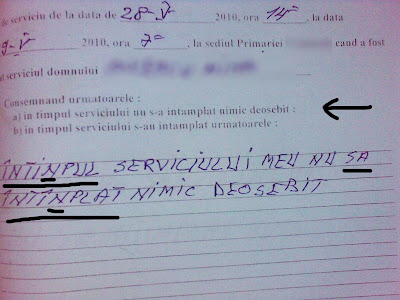 de serviciu de la data de 28 V 2010, ora 14 , la data
9 V 2010, ora 7 , la sediul Primariei cand a fost
serviciul domnului
Consemnand urmatoarele :
a) in timpul serviciului nu s-a intamplat nimic deosebit :
b) in timpul serviciului s-au intamplat urmatoarele :
ÎNTINPUL SERVICIULUI MEU NU SA
ÎNTÎNPLAT NIMIC DEOSEBIT